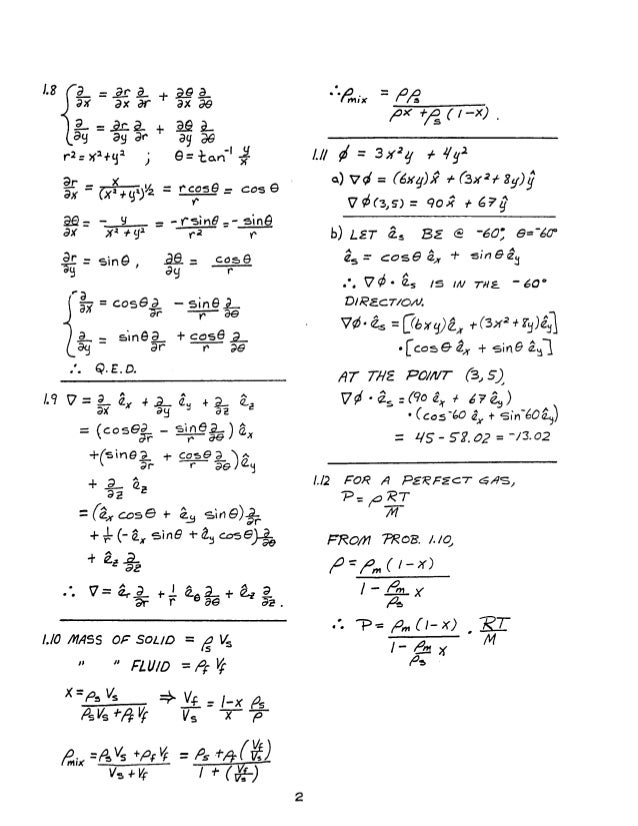 1.8 { ∂/∂x = ∂r/∂x ∂/∂r + ∂θ/∂x ∂/∂θ
∂/∂y = ∂r/∂y ∂/∂r + ∂θ/∂y ∂/∂θ
r² = x² + y² ; θ = tan⁻¹ y/x
∂r/∂x = x/(x² + y²)^½ = r cos θ/r = cos θ
∂θ/∂x = -y/(x² + y²) = -r sin θ/r² = -sin θ/r
∂r/∂y = sin θ, ∂θ/∂y = cos θ/r
{ ∂/∂x = cos θ ∂/∂r - sin θ/r ∂/∂θ
∂/∂y = sin θ ∂/∂r + cos θ/r ∂/∂θ
∴ Q.E.D.
1.9 ∇ = ∂/∂x êx + ∂/∂y êy + ∂/∂z êz
= (cos θ ∂/∂r - sin θ/r ∂/∂θ) êx
+ (sin θ ∂/∂r + cos θ/r ∂/∂θ) êy
+ ∂/∂z êz
= (êx cos θ + êy sin θ) ∂/∂r
+ 1/r (-êx sin θ + êy cos θ) ∂/∂θ
+ êz ∂/∂z
∴ ∇ = êr ∂/∂r + 1/r êθ ∂/∂θ + êz ∂/∂z .
1.10 MASS OF SOLID = ρs Vs
" " FLUID = ρf Vf
x = ρs Vs/(ρs Vs + ρf Vf) ⇒ Vf/Vs = (1-x)/x ρs/ρ
ρmix = (ρs Vs + ρf Vf)/(Vs + Vf) = (ρs + ρf (Vf/Vs))/(1 + (Vf/Vs))
∴ ρmix = ρρs/(ρx + ρs (1-x)) .
1.11 ϕ = 3x²y + 4y²
a) ∇ϕ = (6xy)x̂ + (3x² + 8y)ŷ
∇ϕ(3,5) = 90x̂ + 67ŷ
b) LET ês BE @ -60°, θ=-60°
ês = cos θ êx + sin θ êy
∴ ∇ϕ · ês IS IN THE -60°
DIRECTION.
∇ϕ · ês = [(6xy)êx + (3x² + 8y)êy]
· [cos θ êx + sin θ êy]
AT THE POINT (3,5),
∇ϕ · ês = (90 êx + 67 êy)
· (cos -60 êx + sin -60 êy)
= 45 - 58.02 = -13.02
1.12 FOR A PERFECT GAS,
P = ρ RT/M
FROM PROB. 1.10,
ρ = ρm (1-x)/(1 - ρm/ρs x)
∴ P = ρm (1-x)/(1 - ρm/ρs x) · RT/M
2